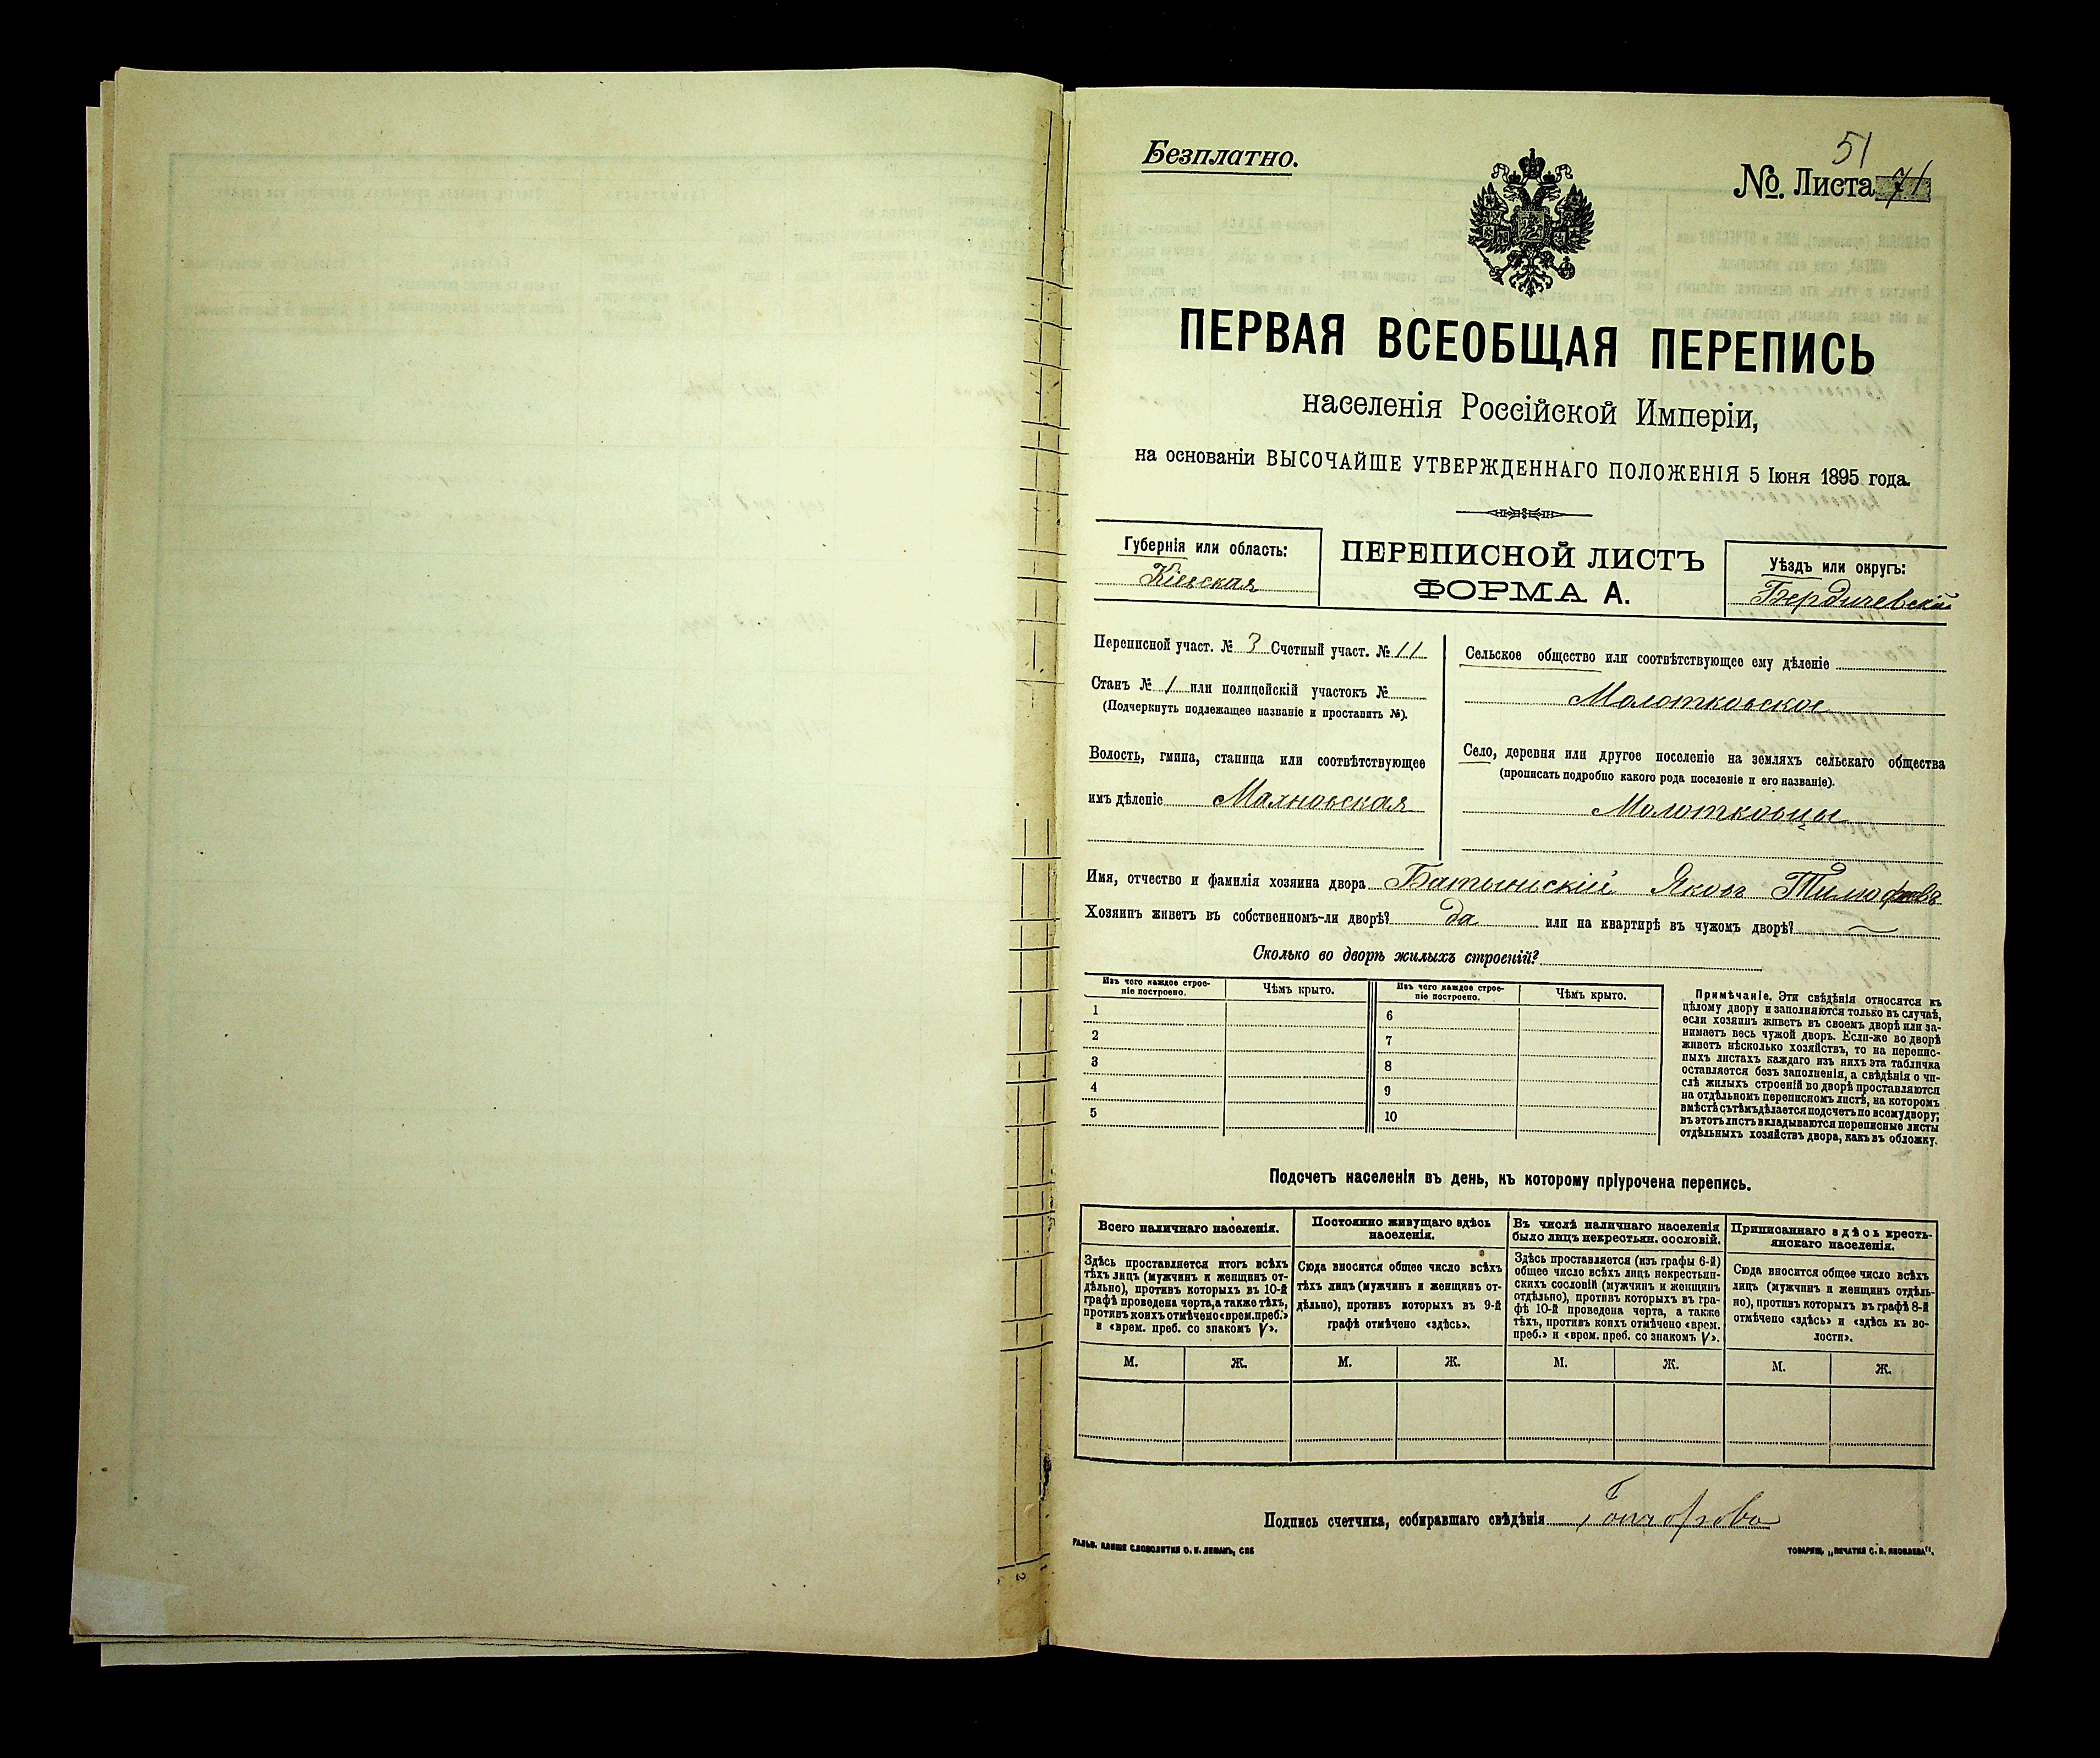 Безплатно.
51
№. Листа 71
ПЕРВАЯ ВСЕОБЩАЯ ПЕРЕПИСЬ
населенія Россійской Имперіи,
на основаніи ВЫСОЧАЙШЕ УТВЕРЖДЕННАГО ПОЛОЖЕНІЯ 5 Іюня 1895 года.
Губернія или область:
Кіевская
ПЕРЕПИСНОЙ ЛИСТЪ
ФОРМА А.
Уѣздъ или округъ:
Бердичевскій
Переписной участ. № 3 Счетный участ. № 11
Станъ № 1 или полицейскій участокъ №
(Подчеркнуть подлежащее названіе и проставить №).
Волость, гмина, станица или соотвѣтствующее
имъ дѣленіе Махновская
Сельское общество или соотвѣтствующее ему дѣленіе
Молотковское
Село, деревня или другое поселеніе на земляхъ сельскаго общества
(прописать подробно какого рода поселеніе и его названіе).
Молотковцы
Имя, отчество и фамилія хозяина двора Батынскій Яковъ Тимофѣевъ
Хозяинъ живетъ въ собственномъ-ли дворѣ? да или на квартирѣ въ чужомъ дворѣ? —
Сколько во дворѣ жилыхъ строеній?
Изъ чего каждое строе-
ніе построено.
Чѣмъ крыто.
Изъ чего каждое строе-
ніе построено.
Чѣмъ крыто.
1
2
3
4
5
6
7
8
9
10
Примѣчаніе. Эти свѣдѣнія относятся къ
цѣлому двору и заполняются только въ случаѣ,
если хозяинъ живетъ въ своемъ дворѣ или за-
нимаетъ весь чужой дворъ. Если-же во дворѣ
живетъ нѣсколько хозяйствъ, то на перепис-
ныхъ листахъ каждаго изъ нихъ эта табличка
оставляется безъ заполненія, а свѣдѣнія о чи-
слѣ жилыхъ строеній во дворѣ проставляются
на отдѣльномъ переписномъ листѣ, на которомъ
вмѣстѣ съ тѣмъ дѣлается подсчетъ по всему двору;
въ этотъ листъ вкладываются переписные листы
отдѣльныхъ хозяйствъ двора, какъ въ обложку.
Подсчетъ населенія въ день, къ которому пріурочена перепись.
Всего наличнаго населенія.
Здѣсь проставляется итогъ всѣхъ
тѣхъ лицъ (мужчинъ и женщинъ от-
дѣльно), противъ которыхъ въ 10-й
графѣ проведена черта, а также тѣхъ,
противъ коихъ отмѣчено «врем. преб.»
и «врем. преб. со знакомъ V».
М. Ж.
Постоянно живущаго здѣсь
населенія.
Сюда вносится общее число всѣхъ
тѣхъ лицъ (мужчинъ и женщинъ от-
дѣльно), противъ которыхъ въ 9-й
графѣ отмѣчено «здѣсь».
М. Ж.
Въ числѣ наличнаго населенія
было лицъ некрестьян. сословій.
Здѣсь проставляется (изъ графы 6-й)
общее число всѣхъ лицъ некрестьян-
скихъ сословій (мужчинъ и женщинъ
отдѣльно), противъ которыхъ въ гра-
фѣ 10-й проведена черта, а также
тѣхъ, противъ коихъ отмѣчено «врем.
преб.» и «врем. преб. со знакомъ V».
М. Ж.
Приписаннаго здѣсь кресть-
янскаго населенія.
Сюда вносится общее число всѣхъ
лицъ (мужчинъ и женщинъ отдѣль-
но), противъ которыхъ въ графѣ 8-й
отмѣчено «здѣсь» и «здѣсь къ во-
лости».
М. Ж.
Подпись счетчика, собиравшаго свѣдѣнія
ГАЛЬВ. КЛИШЕ СЛОВОЛИТНИ О. И. ЛЕМАНЪ, СПБ
ТОВАРИЩ. „ПЕЧАТНЯ С. П. ЯКОВЛЕВА".